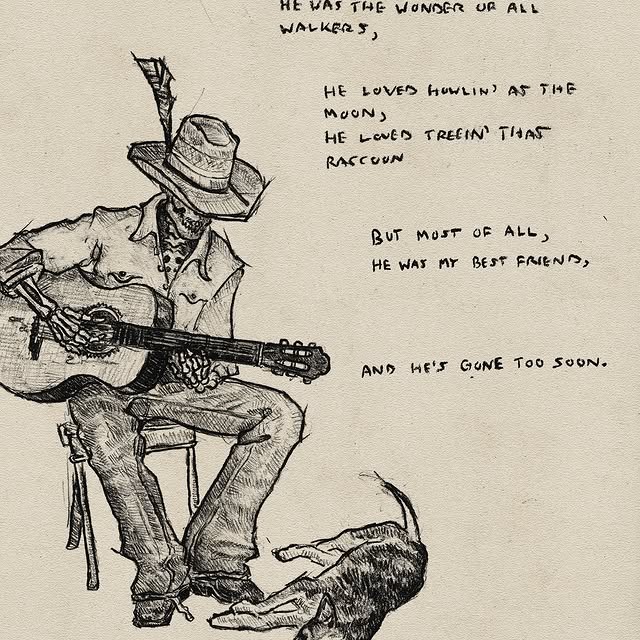 HE WAS THE WONDER OF ALL
WALKERS,
HE LOVED HOWLIN' AT THE
MOON,
HE LOVED TREEIN' THAT
RACCOON
BUT MOST OF ALL,
HE WAS MY BEST FRIEND,
AND HE'S GONE TOO SOON.